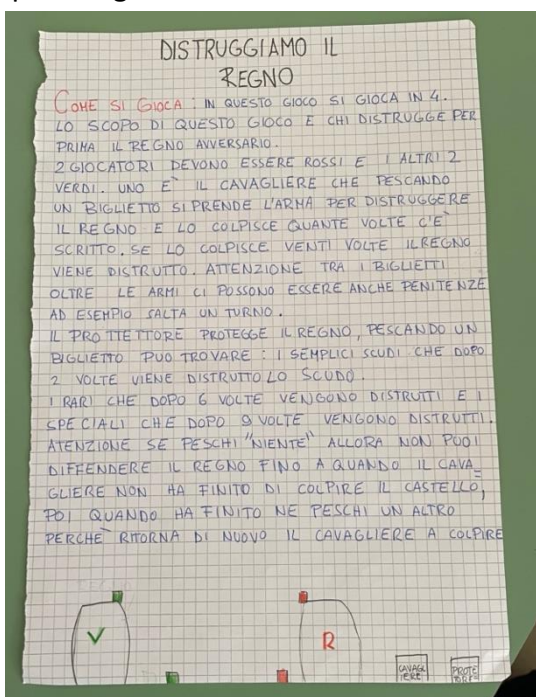 DISTRUGGIAMO IL
REGNO
COME SI GIOCA: IN QUESTO GIOCO SI GIOCA IN 4.
LO SCOPO DI QUESTO GIOCO E CHI DISTRUGGE PER
PRIMA IL REGNO AVVERSARIO.
2 GIOCATORI DEVONO ESSERE ROSSI E I ALTRI 2
VERDI. UNO E` IL CAVAGLIERE CHE PESCANDO
UN BIGLIETTO SI PRENDE L'ARMA PER DISTRUGGERE
IL REGNO E LO COLPISCE QUANTE VOLTE C'E`
SCRITTO. SE LO COLPISCE VENTI VOLTE IL REGNO
VIENE DISTRUTTO. ATTENZIONE TRA I BIGLIETTI
OLTRE LE ARMI CI POSSONO ESSERE ANCHE PENITENZE
AD ESEMPIO SALTA UN TURNO.
IL PROTTETTORE PROTEGGE IL REGNO, PESCANDO UN
BIGLIETTO PUO TROVARE: I SEMPLICI SCUDI CHE DOPO
2 VOLTE VIENE DISTRUTTO LO SCUDO.
I RARI CHE DOPO 6 VOLTE VENGONO DISTRUTTI E I
SPECIALI CHE DOPO 9 VOLTE VENGONO DISTRUTTI.
ATENZIONE SE PESCHI "NIENTE" ALLORA NON PUOI
DIFFENDERE IL REGNO FINO A QUANDO IL CAVA=
GLIERE NON HA FINITO DI COLPIRE IL CASTELLO,
POI QUANDO HA FINITO NE PESCHI UN ALTRO
PERCHE` RITORNA DI NUOVO IL CAVAGLIERE A COLPIRE
V
R
CAVAGL
IERE
PROTE